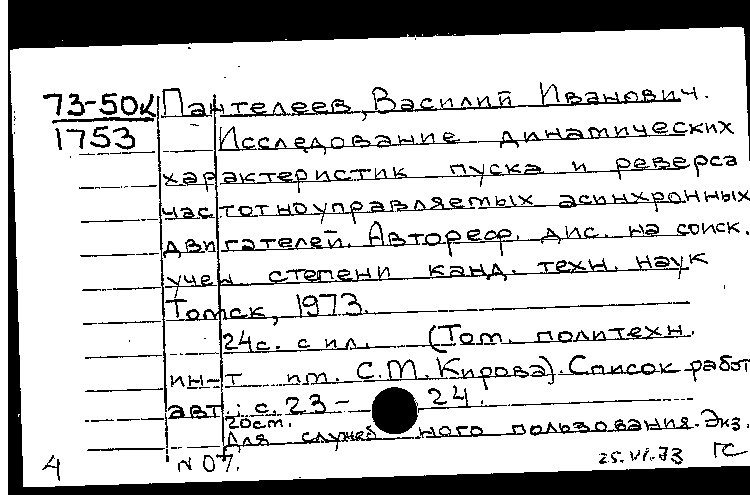 73-50К Пантелеев, Василий Иванович.
1753 Исследование динамических
характеристик пуска и реверса
частотноуправляемых асинхронных
двигателей. Автореф. дис. на соиск.
учен степени канд. техн. наук
Томск, 1973.
24с. с ил. (Том. политехн.
ин-т им. С.М. Кирова). Список работ
авт.: с. 23-24.
20см.
Для служебного пользования. Экз.
N 07.
4 25.VI.73 ГС